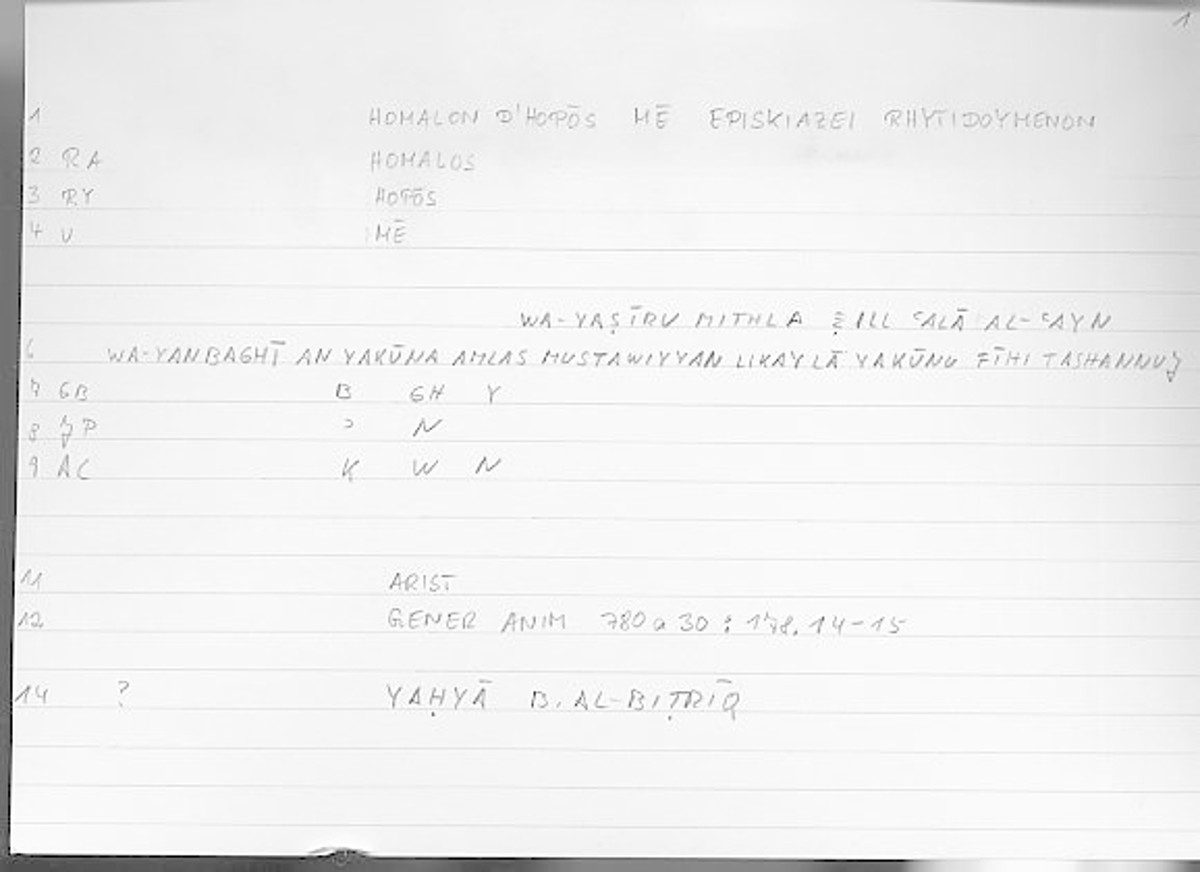 1
1 HOMALON D'HOPŌS MĒ EPISKIAZEI RHYTIDOYMENON
2 RA HOMALOS
3 RY HOPŌS
4 U MĒ
WA-YAṢĪRU MITHLA ẒILL ʿALĀ AL-ʿAYN
6 WA-YANBAGHĪ AN YAKŪNA AMLAS MUSTAWIYYAN LIKAYLĀ YAKŪNU FĪHI TASHANNUJ
7 GB B GH Y
8 JP ʾ N
9 AC K W N
11 ARIST
12 GENER ANIM 780 a 30 : 178.14-15
14 ? YAḤYĀ B. AL-BIṬRĪQ